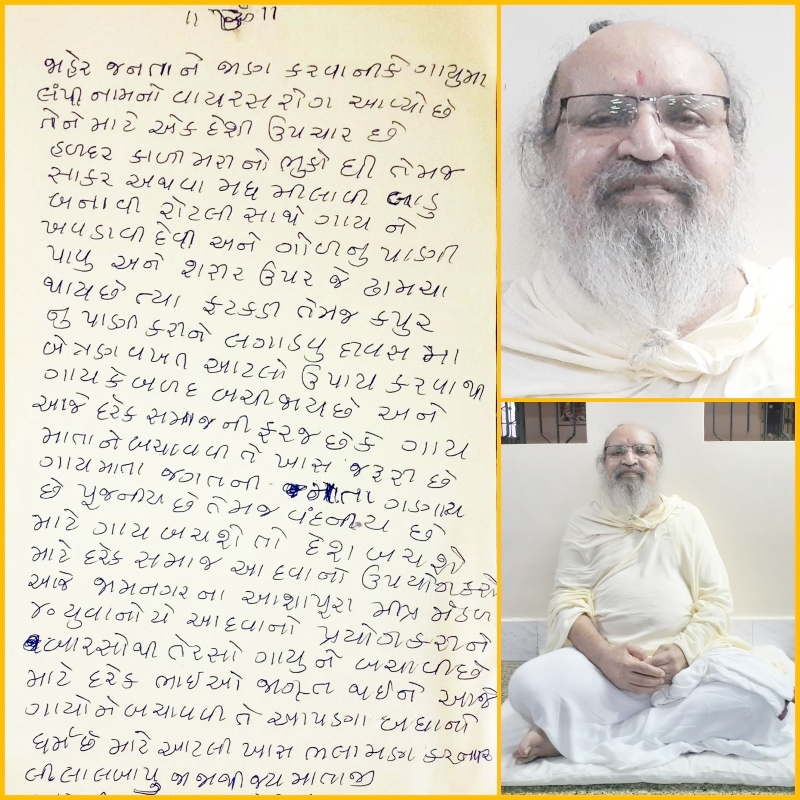 ॥ ૐ ॥
જાહેર જનતાને જાણ કરવાનીકે ગાયુમા
લંપી નામનો વાયરસ રોગ આવ્યો છે
તેને માટે એક દેશી ઉપચાર છે
હળદર કાળી મરી નો ભુકો ઘી તેમજ
સાકર અથવા મધ મીલાવી લાડુ
બનાવી રોટલી સાથે ગાય ને
ખવડાવી દેવી અને ગોળનુ પાણી
પાવુ અને શરીર ઉપર જે ઢામચા
થાય છે ત્યા ફટકડી તેમજ કપુર
નુ પાણી કરીને લગાડવુ દીવસ મા
બે ત્રણ વખત આટલો ઉપાય કરવાથી
ગાય કે બળદ બચી જાય છે અને
આજે દરેક સમાજ ની ફરજ છે કે ગાય
માતા ને બચાવવી તે ખાસ જરૂરી છે
ગાય માતા જગતની માતા ગણાય
છે પૂજનીય છે તેમજ વંદનીય છે
માટે ગાય બચશે તો દેશ બચશે
માટે દરેક સમાજ આ દવાનો ઉપયોગ કરો
આજે જામનગર ના આશાપૂરા મીત્ર મંડળ
૪૦ યુવાનો યે આ દવાનો પ્રયોગ કરીને
બારસોથી તેરસો ગાયુ ને બચાવી છે
માટે દરેક ભાઈઓ જાગૃત થઈને આજે
ગાયોને બચાવવી તે આપણા બધાનો
ધર્મ છે માટે આટલી ખાસ ભલામણ કરનાર
લી લાલબાપુ જય માતાજી